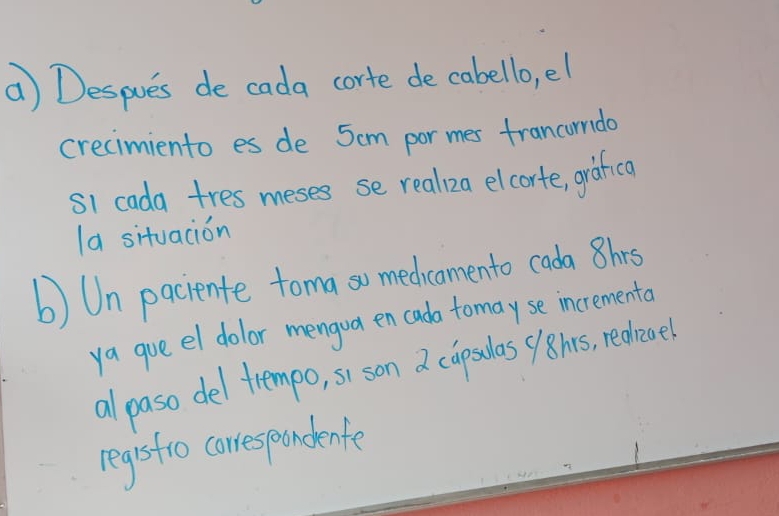 a) Después de cada corte de cabello, el
crecimiento es de 5cm por mes trancurrido
si cada tres meses se realiza el corte, gráfica
la situación
b) Un paciente toma su medicamento cada 8hrs
ya que el dolor mengua en cada toma y se incrementa
al paso del tiempo, si son 2 cápsulas c/8hrs, realiza el
registro correspondente